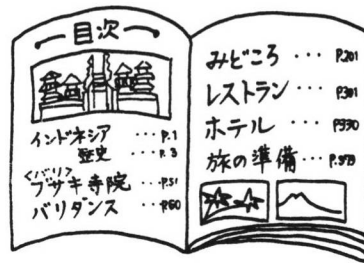 目次
インドネシア … P.1
歴史 … P.3
<バリ>
ブサキ寺院 … P.51
バリダンス … P.60
みどころ … P.201
レストラン … P.301
ホテル … P.330
旅の準備 …